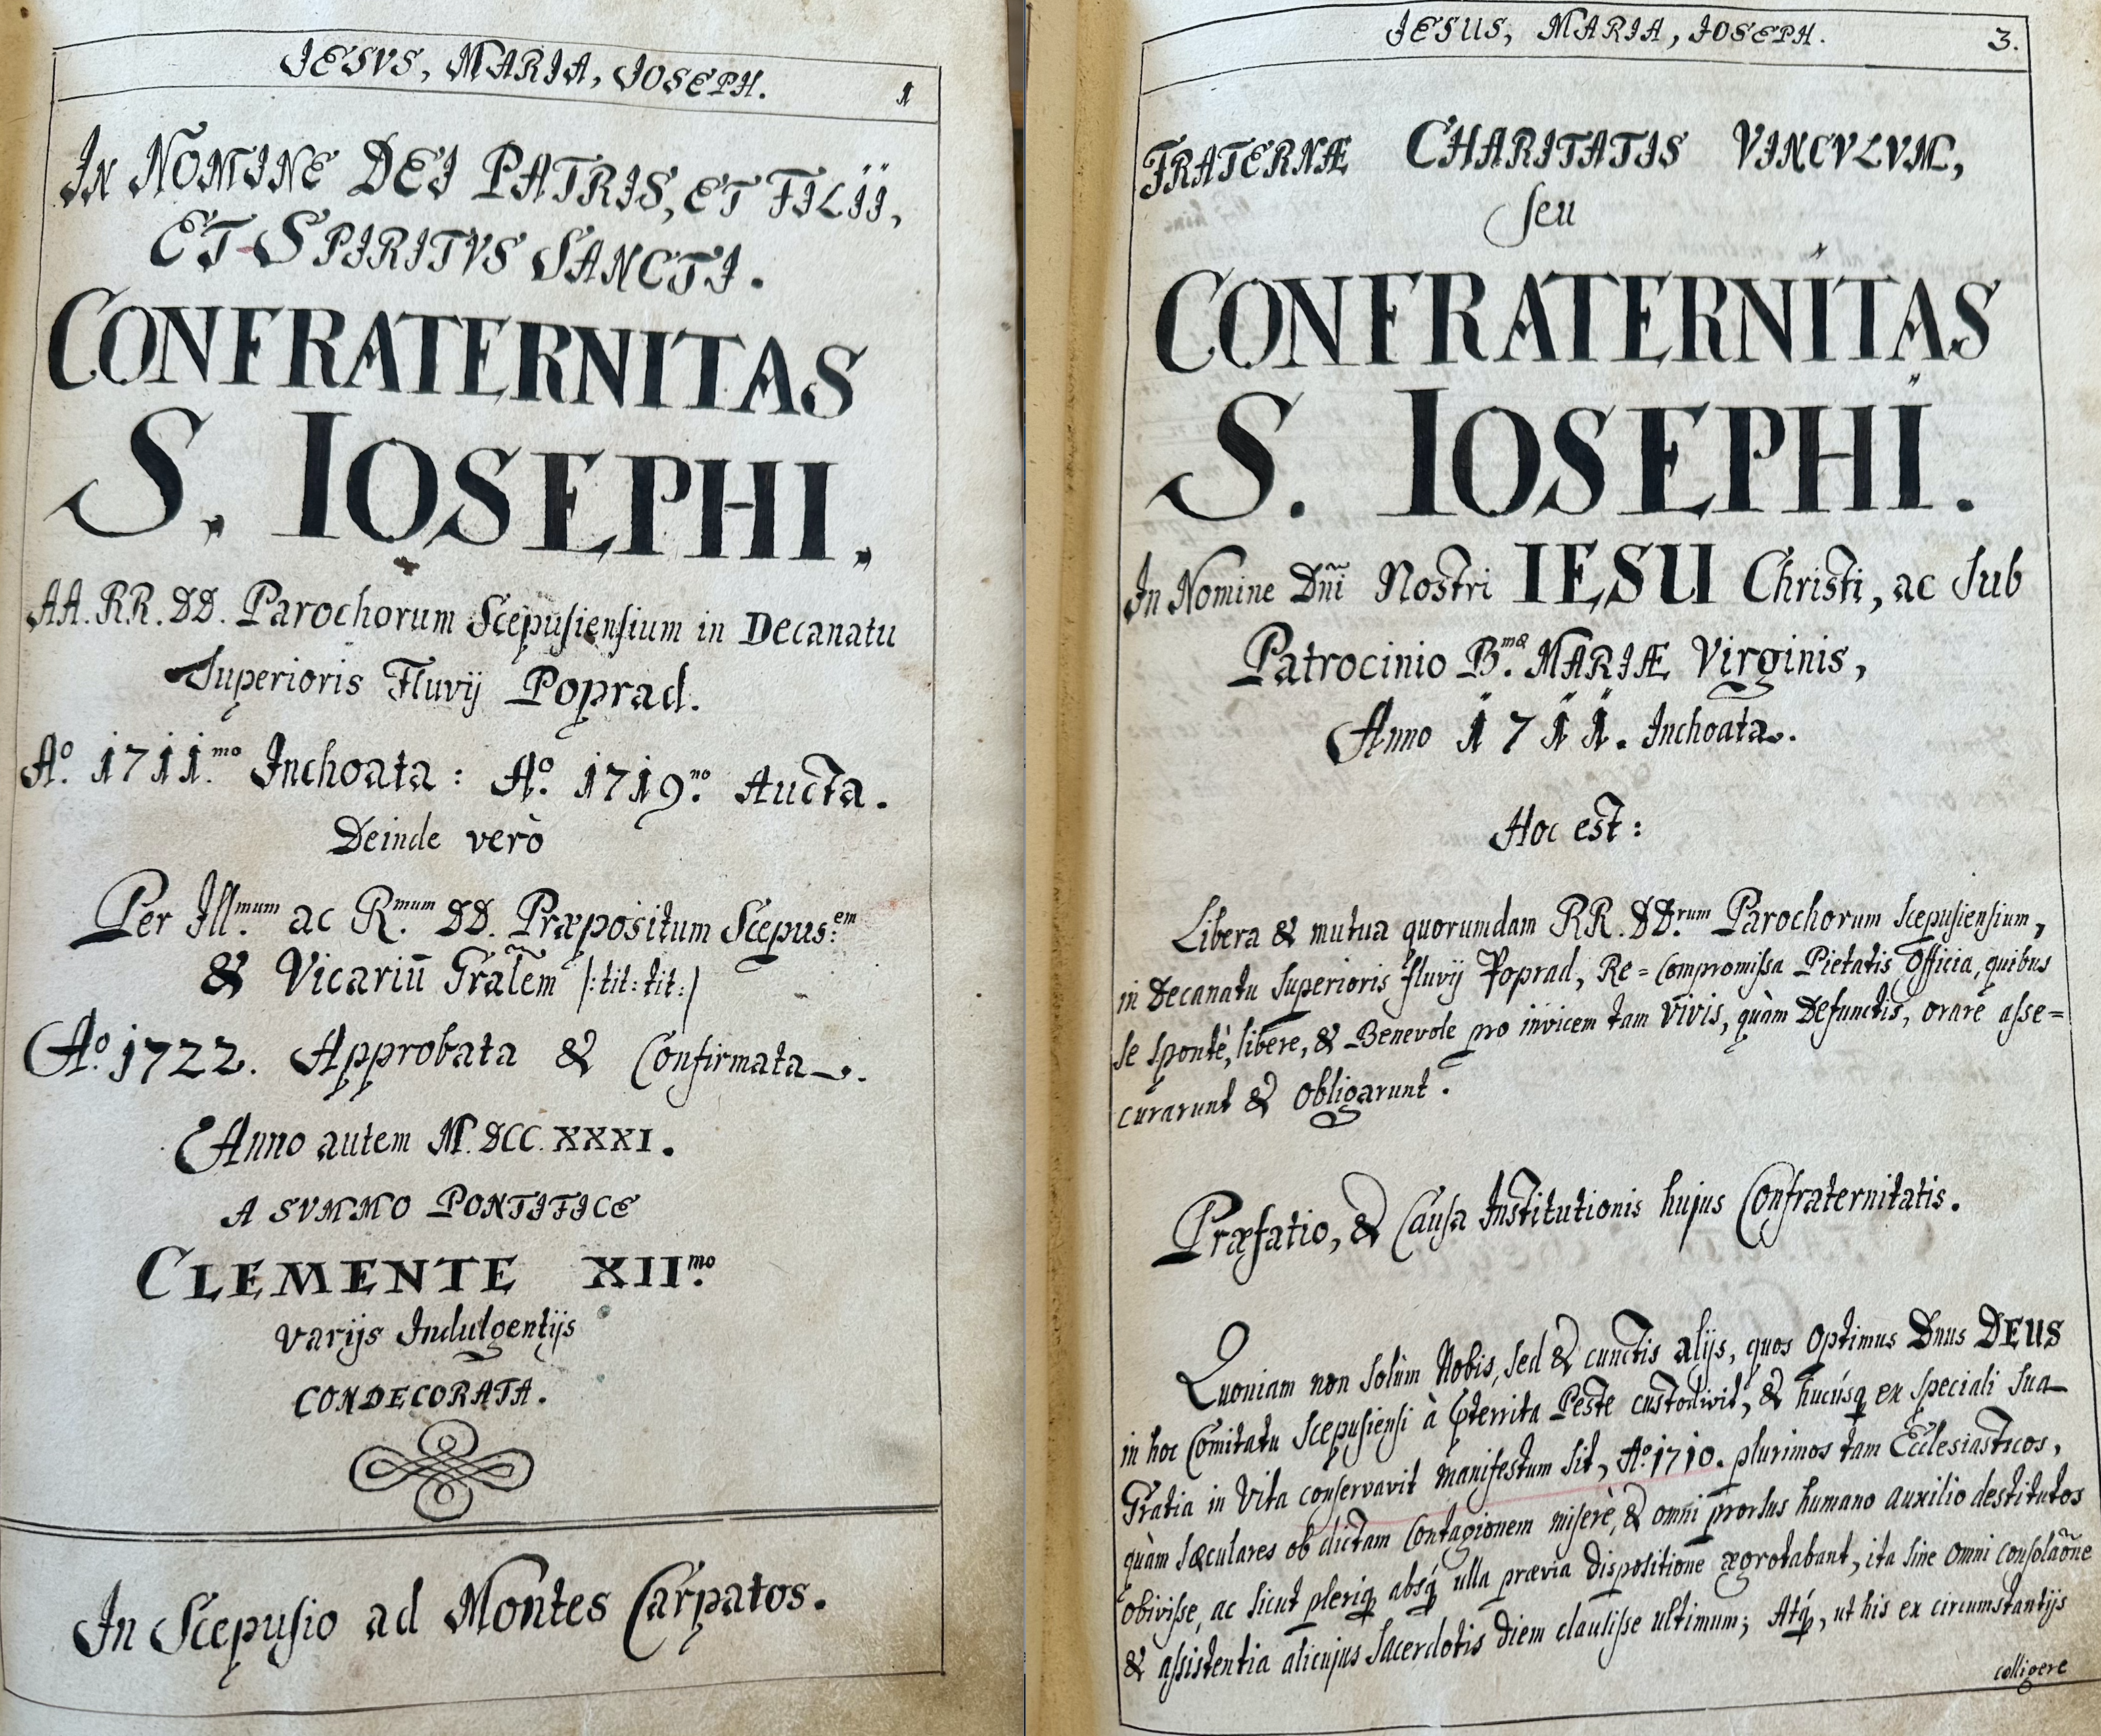 JESVS, MARIA, JOSEPH. 1
IN NOMINE DEI PATRIS, ET FILII,
ET SPIRITVS SANCTI.
CONFRATERNITAS
S. IOSEPHI.
AA. RR. DD. Parochorum Scepusiensium in Decanatu
Superioris Fluvij Poprad.
Aº. 1711.mo Inchoata: Aº. 1719.no Aucta.
Deinde verò
Per Ill.mum ac R.mum DD. Præpositum Scepus:em
& Vicariũ Gr̃alem /:tit:tit:/
Aº. 1722. Approbata & Confirmata.
Anno autem M.DCC.XXXI.
A SVMMO PONTIFICE
CLEMENTE XII.mo
varijs Indulgentijs
CONDECORATA.
In Scepusio ad Montes Carpatos.
JESUS, MARIA, JOSEPH. 3.
FRATERNÆ CHARITATIS VINCVLVM,
seu
CONFRATERNITAS
S. IOSEPHI.
In Nomine Dñi Nostri IESU Christi, ac sub
Patrocinio B.mæ MARIÆ Virginis,
Anno 1711. Inchoata.
Hoc est:
Libera & mutua quorumdam RR. DD.rum Parochorum Scepusiensium,
in Decanatu Superioris fluvij Poprad, Re=compromissa Pietatis Officia, quibus
se spontè, libere, & Benevole pro invicem tam Vivis, quàm Defunctis, orare asse=
curarunt & obligarunt.
Præfatio, & Causa Institutionis hujus Confraternitatis.
Quoniam non solùm Nobis, sed & cunctis alijs, quos Optimus Dnus DEUS
in hoc Comitatu Scepusiensi à p̱territa Peste custodivit, & hucúsq́ ex speciali sua
Gratia in Vita conservavit manifestum sit, Aº. 1710. plurimos tam Ecclesiasticos,
quàm Sæculares ob dictam Contagionem miserè, & omni prorsus humano auxilio destitutos
obivisse, ac sicut pleriq́ absq́ ulla prævia dispositione ægrotabant, ita sine omni consolaõne
& assistentia alicujus Sacerdotis diem clausisse ultimum; Atq́, ut his ex circumstantijs
colligere